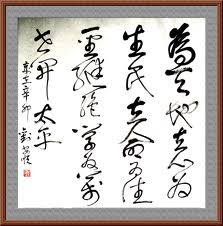 為天地立心為
生民立命為往
聖繼絕學為萬
世開太平
辛卯
劉